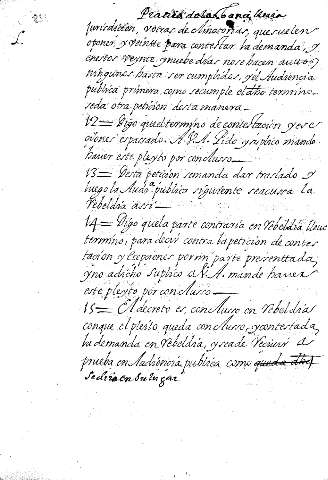 Practica de la Chanzilleria
jurisdicion, y otras declinatorias, que suelen
oponer, y veinte para contestar la demanda, y
en estos veynte, y nuebe dias no se hacen autos
ningunos hasta ser cumplidos, y el Audiencia
publica primera como se cumple el dho termino
se da otra peticion desta manera.
12 = Digo que el termino de contestacion, y exe
ciones es pasado. A V. A. pido, y suplico mande
haver este pleyto por concluso
13 = Desta peticion se manda dar traslado y
luego la Auda publica siguiente se acusa la
Rebeldia assi
14 = Digo que la parte contraria en Rebeldia llevo
termino, para decir contra la peticion de contes
tacion, y Excepciones por mi parte presenttada,
y no a dicho suplico a V. A. mande haver
este pleyto por concluso
15 = El decreto es, concluso en Rebeldia
con que el pleito queda concluso, y contestada
la demanda en Rebeldia, y se a de Recivir a
prueba en Audiencia publica como queda dho
se dira en su lugar